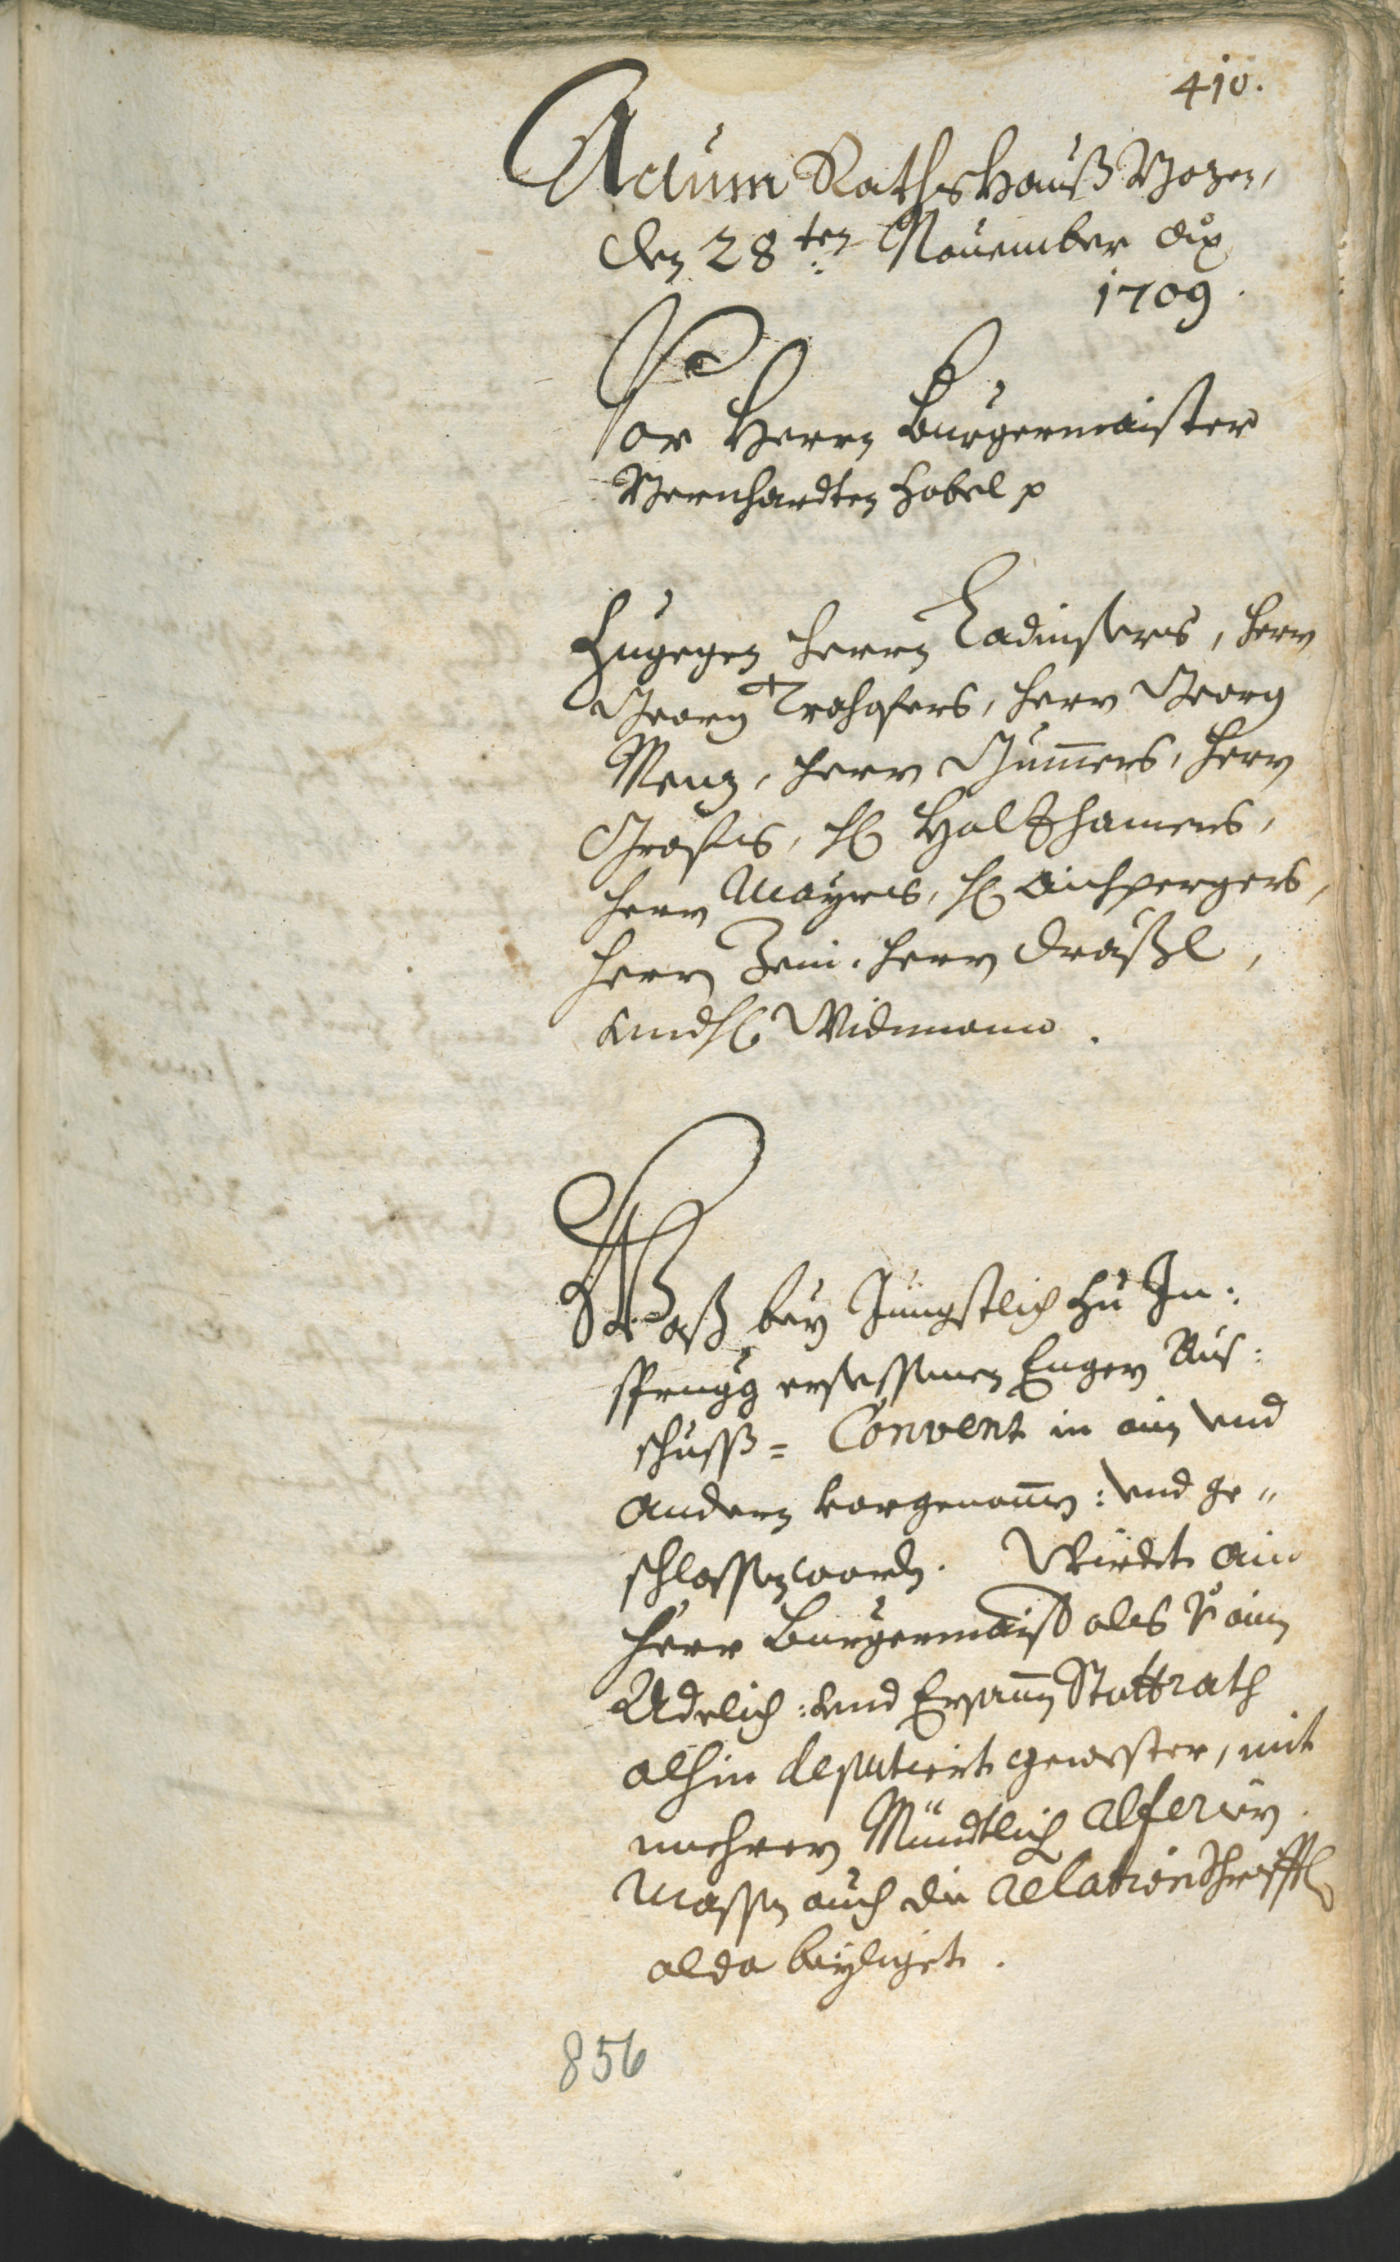 410.
Actum Rathshauß Bozen,
den 28ten November Aō
1709.
Vor Herrn Burgermaister
Bernhardten Hobel p
Zugegen Herrn Ladinsers, Herrn
Georg Trohofers, Herrn Georg
Menz, Herrn Gumers, Herrn
Grafens, H. Holzhamers,
Herrn Mayrs, H. Aichpergers,
Herrn Zeni, Herrn Dräxl,
und H. Widmann.
Waß bey Jüngstlich zu In:
sprugg ersessenen Enger Aus:
schuss= Convent in ain und
andern vorgenomen: und ge„
schlossen worden. Würdt ain
Herr Burgermaister als von ainen
Adelich: und Ersamen Stattrath
alhin deputiert gewester, mit
mehrern Mündtlich referiern
Massen auch die relation Schrifftl.
alda beyliget.
856